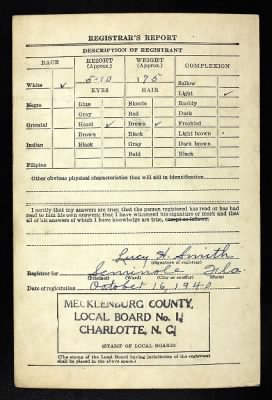 REGISTRAR'S REPORT
DESCRIPTION OF REGISTRANT
RACE HEIGHT (Approx.) WEIGHT (Approx.) COMPLEXION
5-10 175 Sallow
White ✓ EYES HAIR Light ✓
Negro Blue Blonde Ruddy
Gray Red Dark
Oriental Hazel ✓ Brown ✓ Freckled
Brown Black Light brown
Indian Black Gray Dark brown
Bald Black
Filipino
Other obvious physical characteristics that will aid in identification
I certify that my answers are true; that the person registered has read or has had
read to him his own answers; that I have witnessed his signature or mark and that
all of his answers of which I have knowledge are true, except as follows:
Lucy H. Smith
(Signature of registrar)
Registrar for Seminole Fla.
(Precinct) (Ward) (City or county) (State)
Date of registration October 16, 1940
MECKLENBURG COUNTY,
LOCAL BOARD No. 1,
CHARLOTTE, N. C.
(STAMP OF LOCAL BOARD)
(The stamp of the Local Board having jurisdiction of the registrant
shall be placed in the above space.)